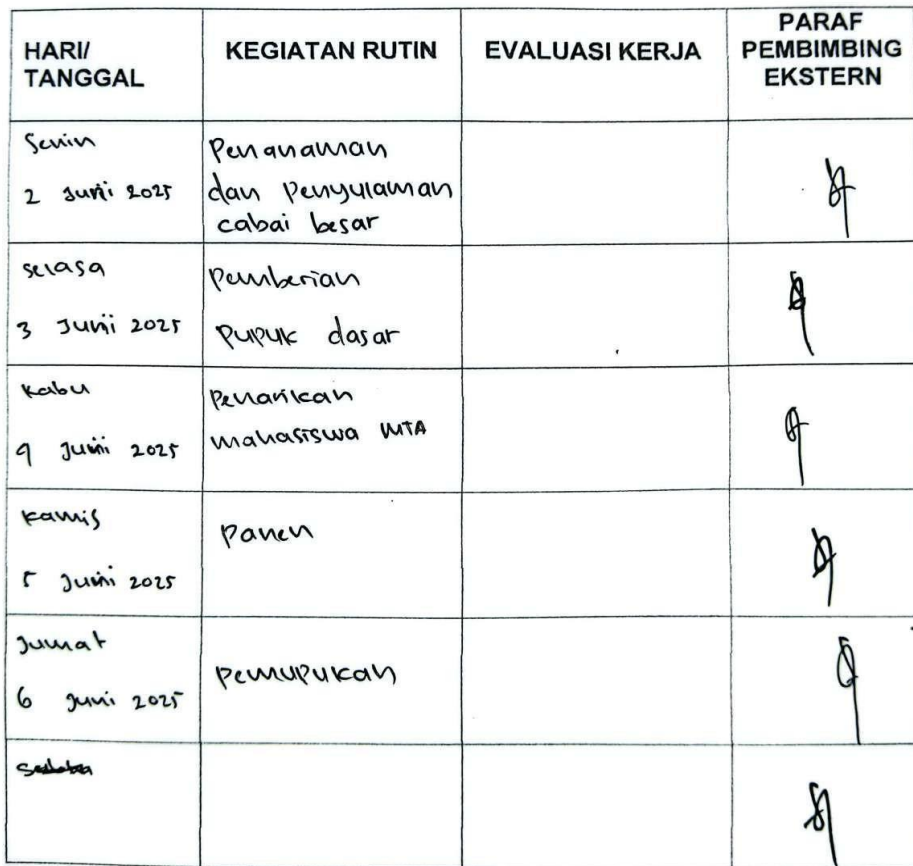 HARI/
TANGGAL
KEGIATAN RUTIN
EVALUASI KERJA
PARAF
PEMBIMBING
EKSTERN
Senin
2 Juni 2025
Penanaman
dan Penyulaman
cabai besar
Selasa
3 Juni 2025
Pemberian
Pupuk dasar
Rabu
4 Juni 2025
Penarikan
mahasiswa MTA
Kamis
5 Juni 2025
Panen
Jumat
6 Juni 2025
Pemupukan